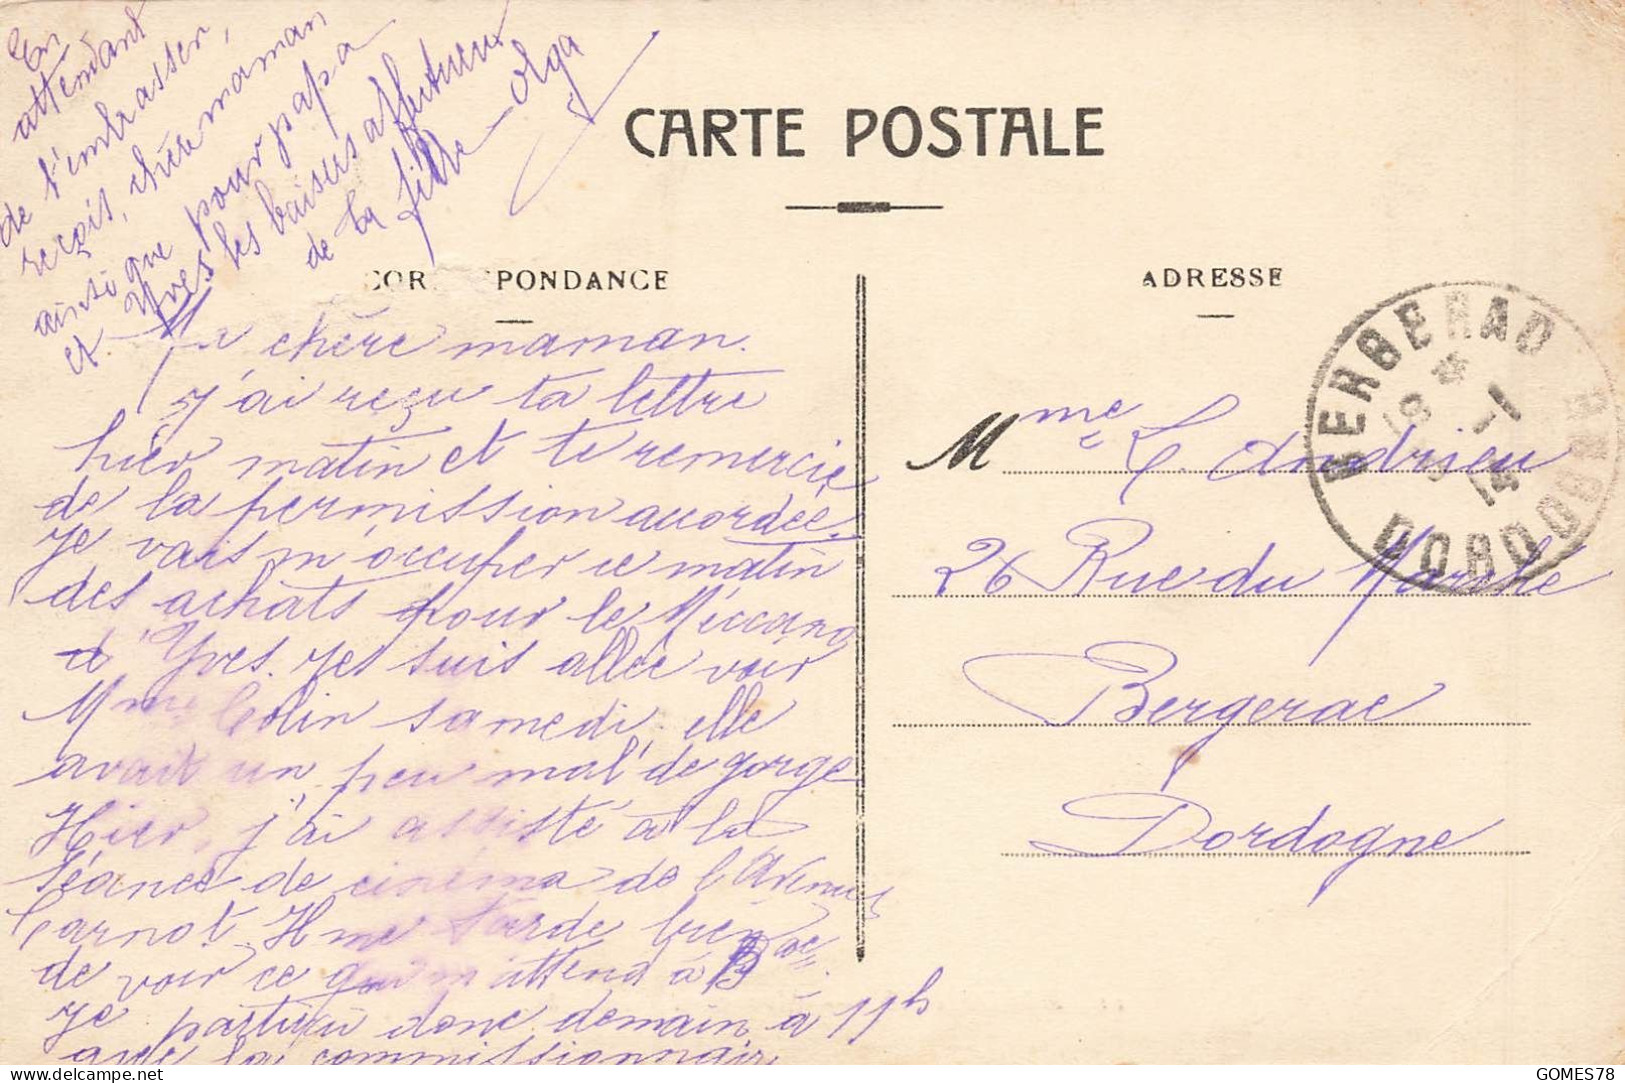 CARTE POSTALE
CORRESPONDANCE
ADRESSE
Ma chère maman.
J'ai reçu ta lettre
hier matin et te remercie
de la permission accordée.
Je vais m'occuper ce matin
des achats pour le Méccano
d'Yves. Je suis allée voir
Mme Colin samedi, elle
avait un peu mal de gorge
Hier, j'ai assisté à la
séance de cinéma de l'Avenue
Carnot. Il me tarde bien
de voir ce qui m'attend à Bac.
Je partirai donc demain à 11h
avec la commissionnaire
En
attendant
de t'embrasser,
reçois, chère maman
ainsi que pour papa
et Yves les baisers affectueux
de ta fille - Olga
Mme C. Andrieu
26 Rue du Marché
Bergerac
Dordogne
BERGERAC
DORDOGNE
delcampe.net
GOMES78